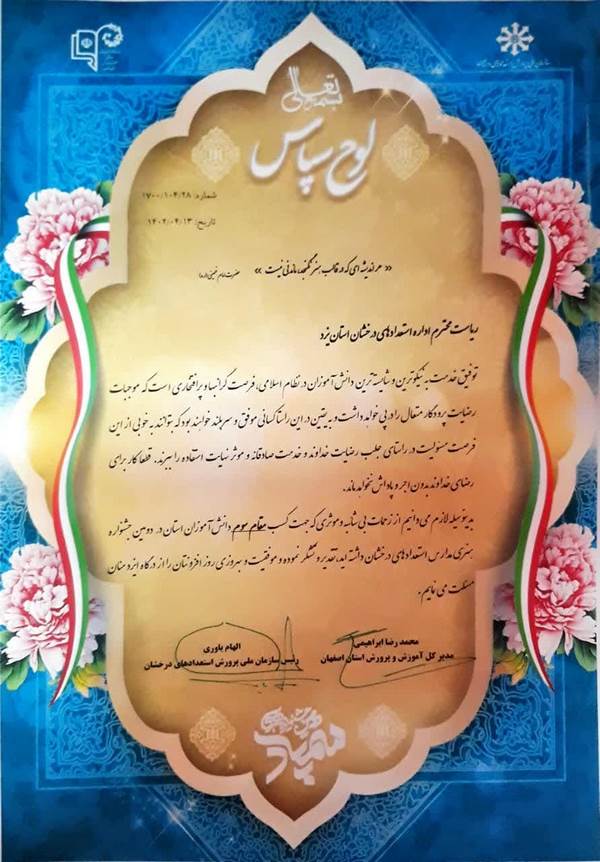 بسمه تعالی
لوح سپاس
شماره: ۱۷۰۰/۱۰۴/۲۸
تاریخ: ۱۴۰۲/۰۴/۱۳
« هر اندیشه ای که در قالب هنر نگنجد، ماندنی نیست »
حضرت امام خمینی (ره)
ریاست محترم اداره استعدادهای درخشان استان یزد
توفیق خدمت به نیکوترین و شایسته ترین دانش آموزان در نظام اسلامی، فرصت گرانبها و پرافتخاری است که موجبات
رضایت پروردگار متعال را در پی خواهد داشت و به یقین در این راستا کسانی موفق و سربلند خواهند بود که بتوانند به خوبی از این
فرصت مسئولیت در راستای جلب رضایت خداوند و خدمت صادقانه و موثر نهایت استفاده را ببرند. قطعا کار برای
رضای خداوند بدون اجر و پاداش نخواهد ماند.
بدینوسیله لازم می دانیم از زحمات بی شائبه و موثری که جهت کسب مقام سوم دانش آموزان استان در دومین جشنواره
هنری مدارس استعدادهای درخشان داشته اید، تقدیر و تشکر نموده و موفقیت و بهروزی روز افزونتان را از درگاه ایزد منان
مسئلت می نمایم.
محمد رضا ابراهیمی
مدیر کل آموزش و پرورش استان اصفهان
الهام یاوری
رئیس سازمان ملی پرورش استعدادهای درخشان